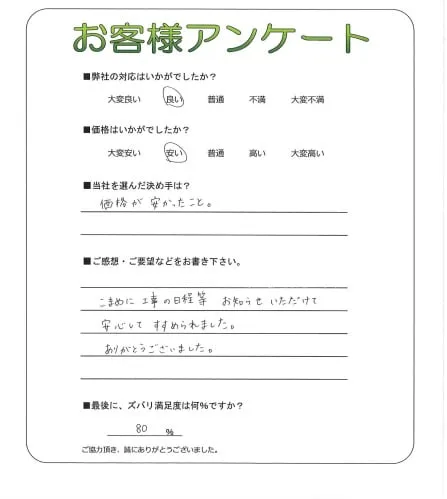 お客様アンケート
■弊社の対応はいかがでしたか?
大変良い 良い 普通 不満 大変不満
■価格はいかがでしたか?
大変安い 安い 普通 高い 大変高い
■当社を選んだ決め手は?
価格が安かったこと。
■ご感想・ご要望などをお書き下さい。
こまめに工事の日程等 お知らせいただけて
安心して すすめられました。
ありがとうございました。
■最後に、ズバリ満足度は何%ですか?
80 %
ご協力頂き、誠にありがとうございました。